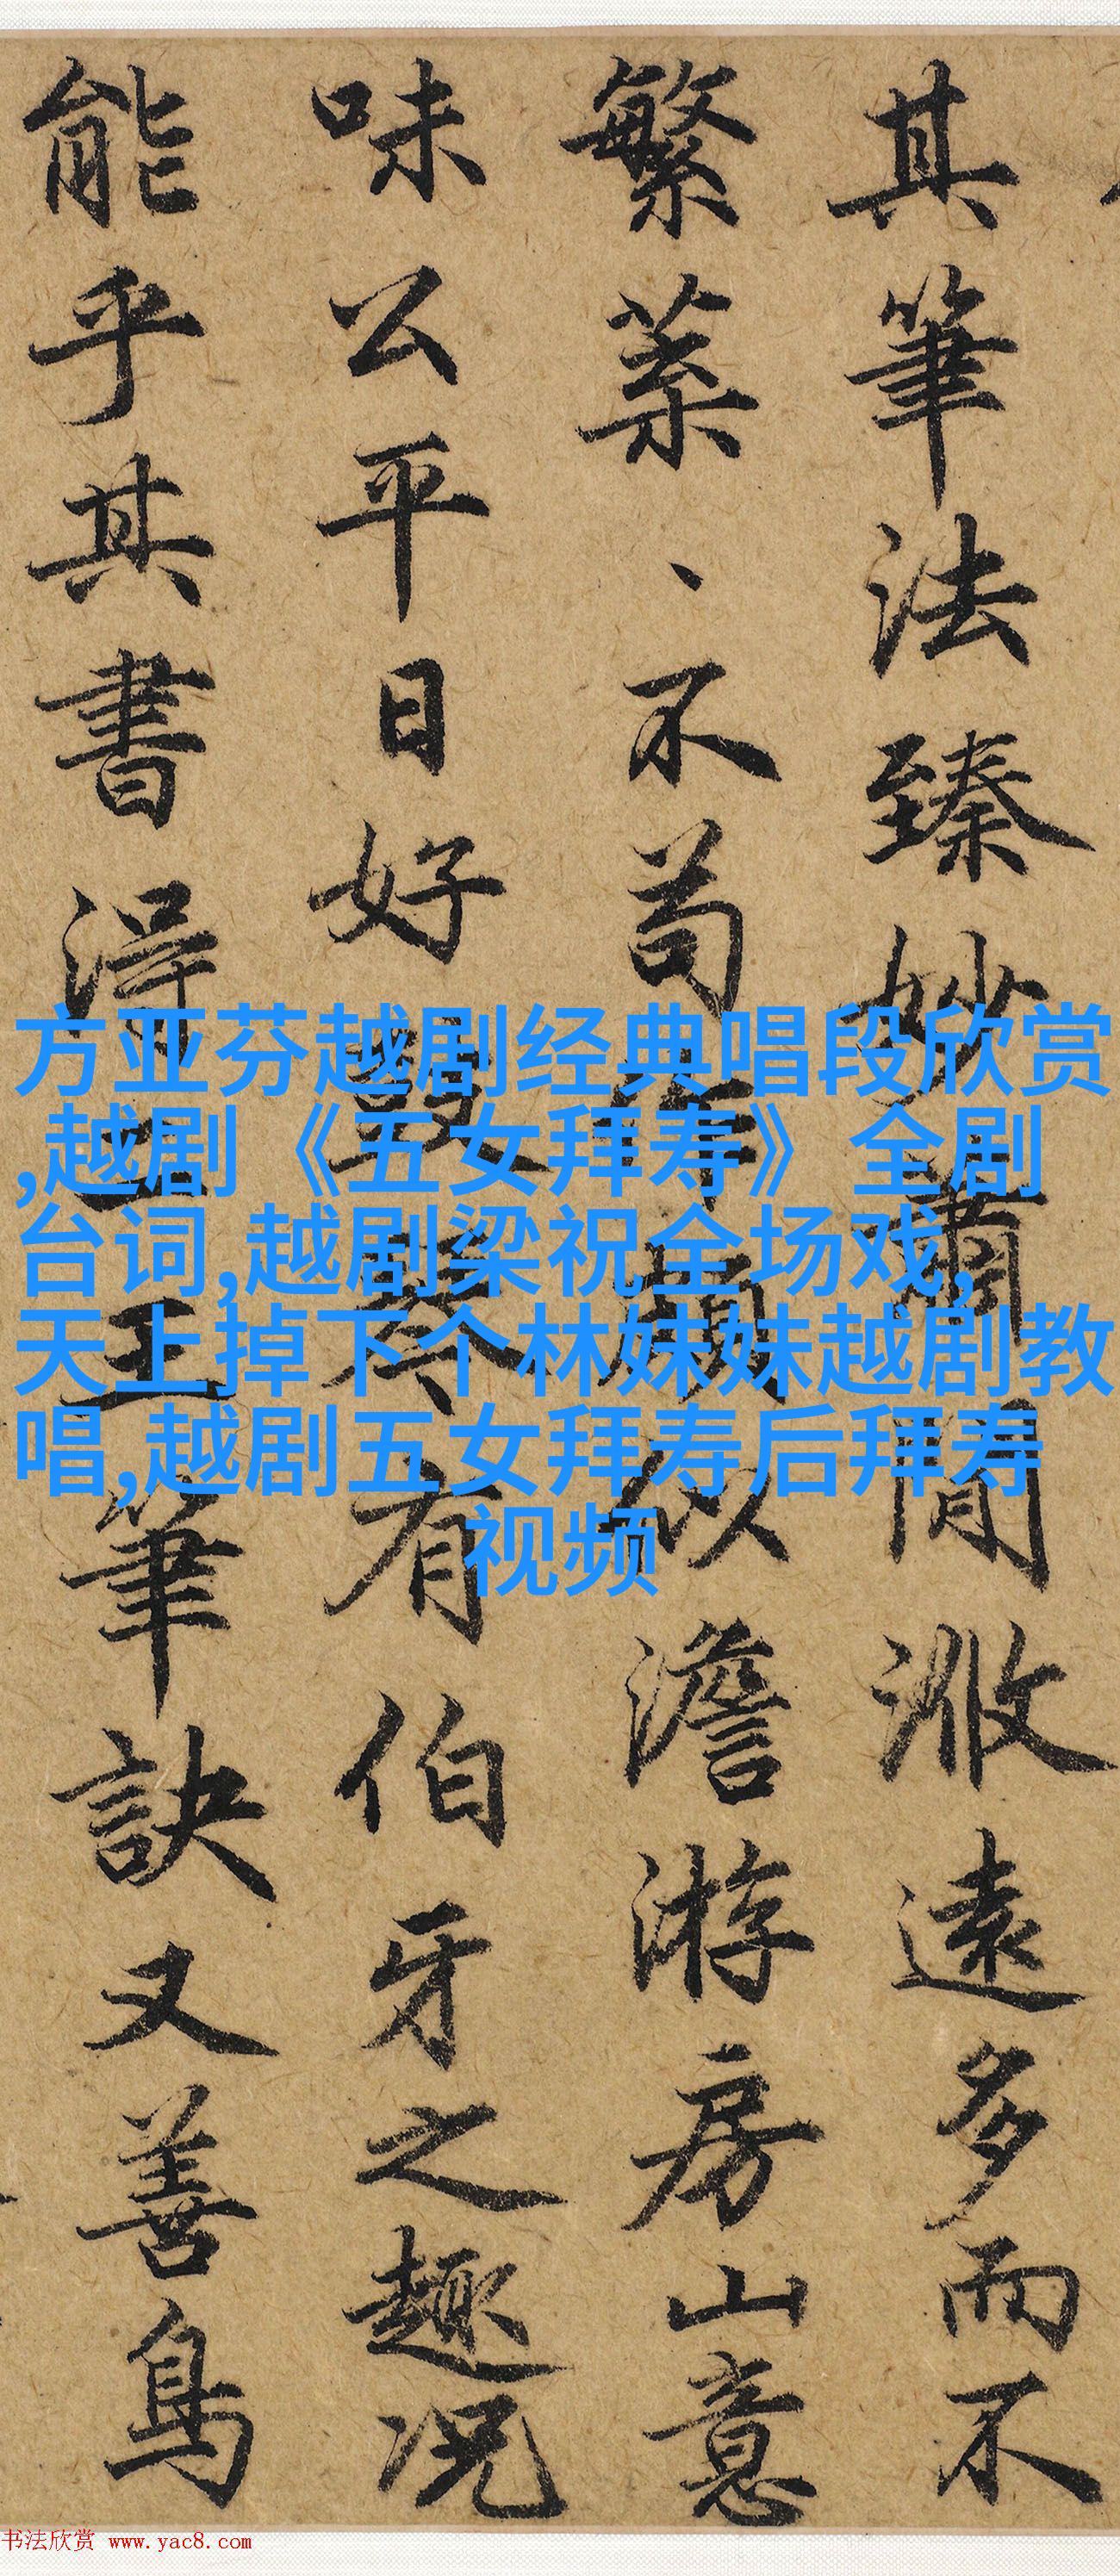 其筆法臻妙蕭閒遠多而不
繁、不苟作頗似澹游房山意
味公平日好鼓琴有伯牙之趣況
能乎其書得二王筆訣又善鳥
方亚芬越剧经典唱段欣赏
,越剧《五女拜寿》全剧
台词,越剧梁祝全场戏,
天上掉下个林妹妹越剧教
唱,越剧五女拜寿后拜寿
视频
书法欣赏 www.yac8.com